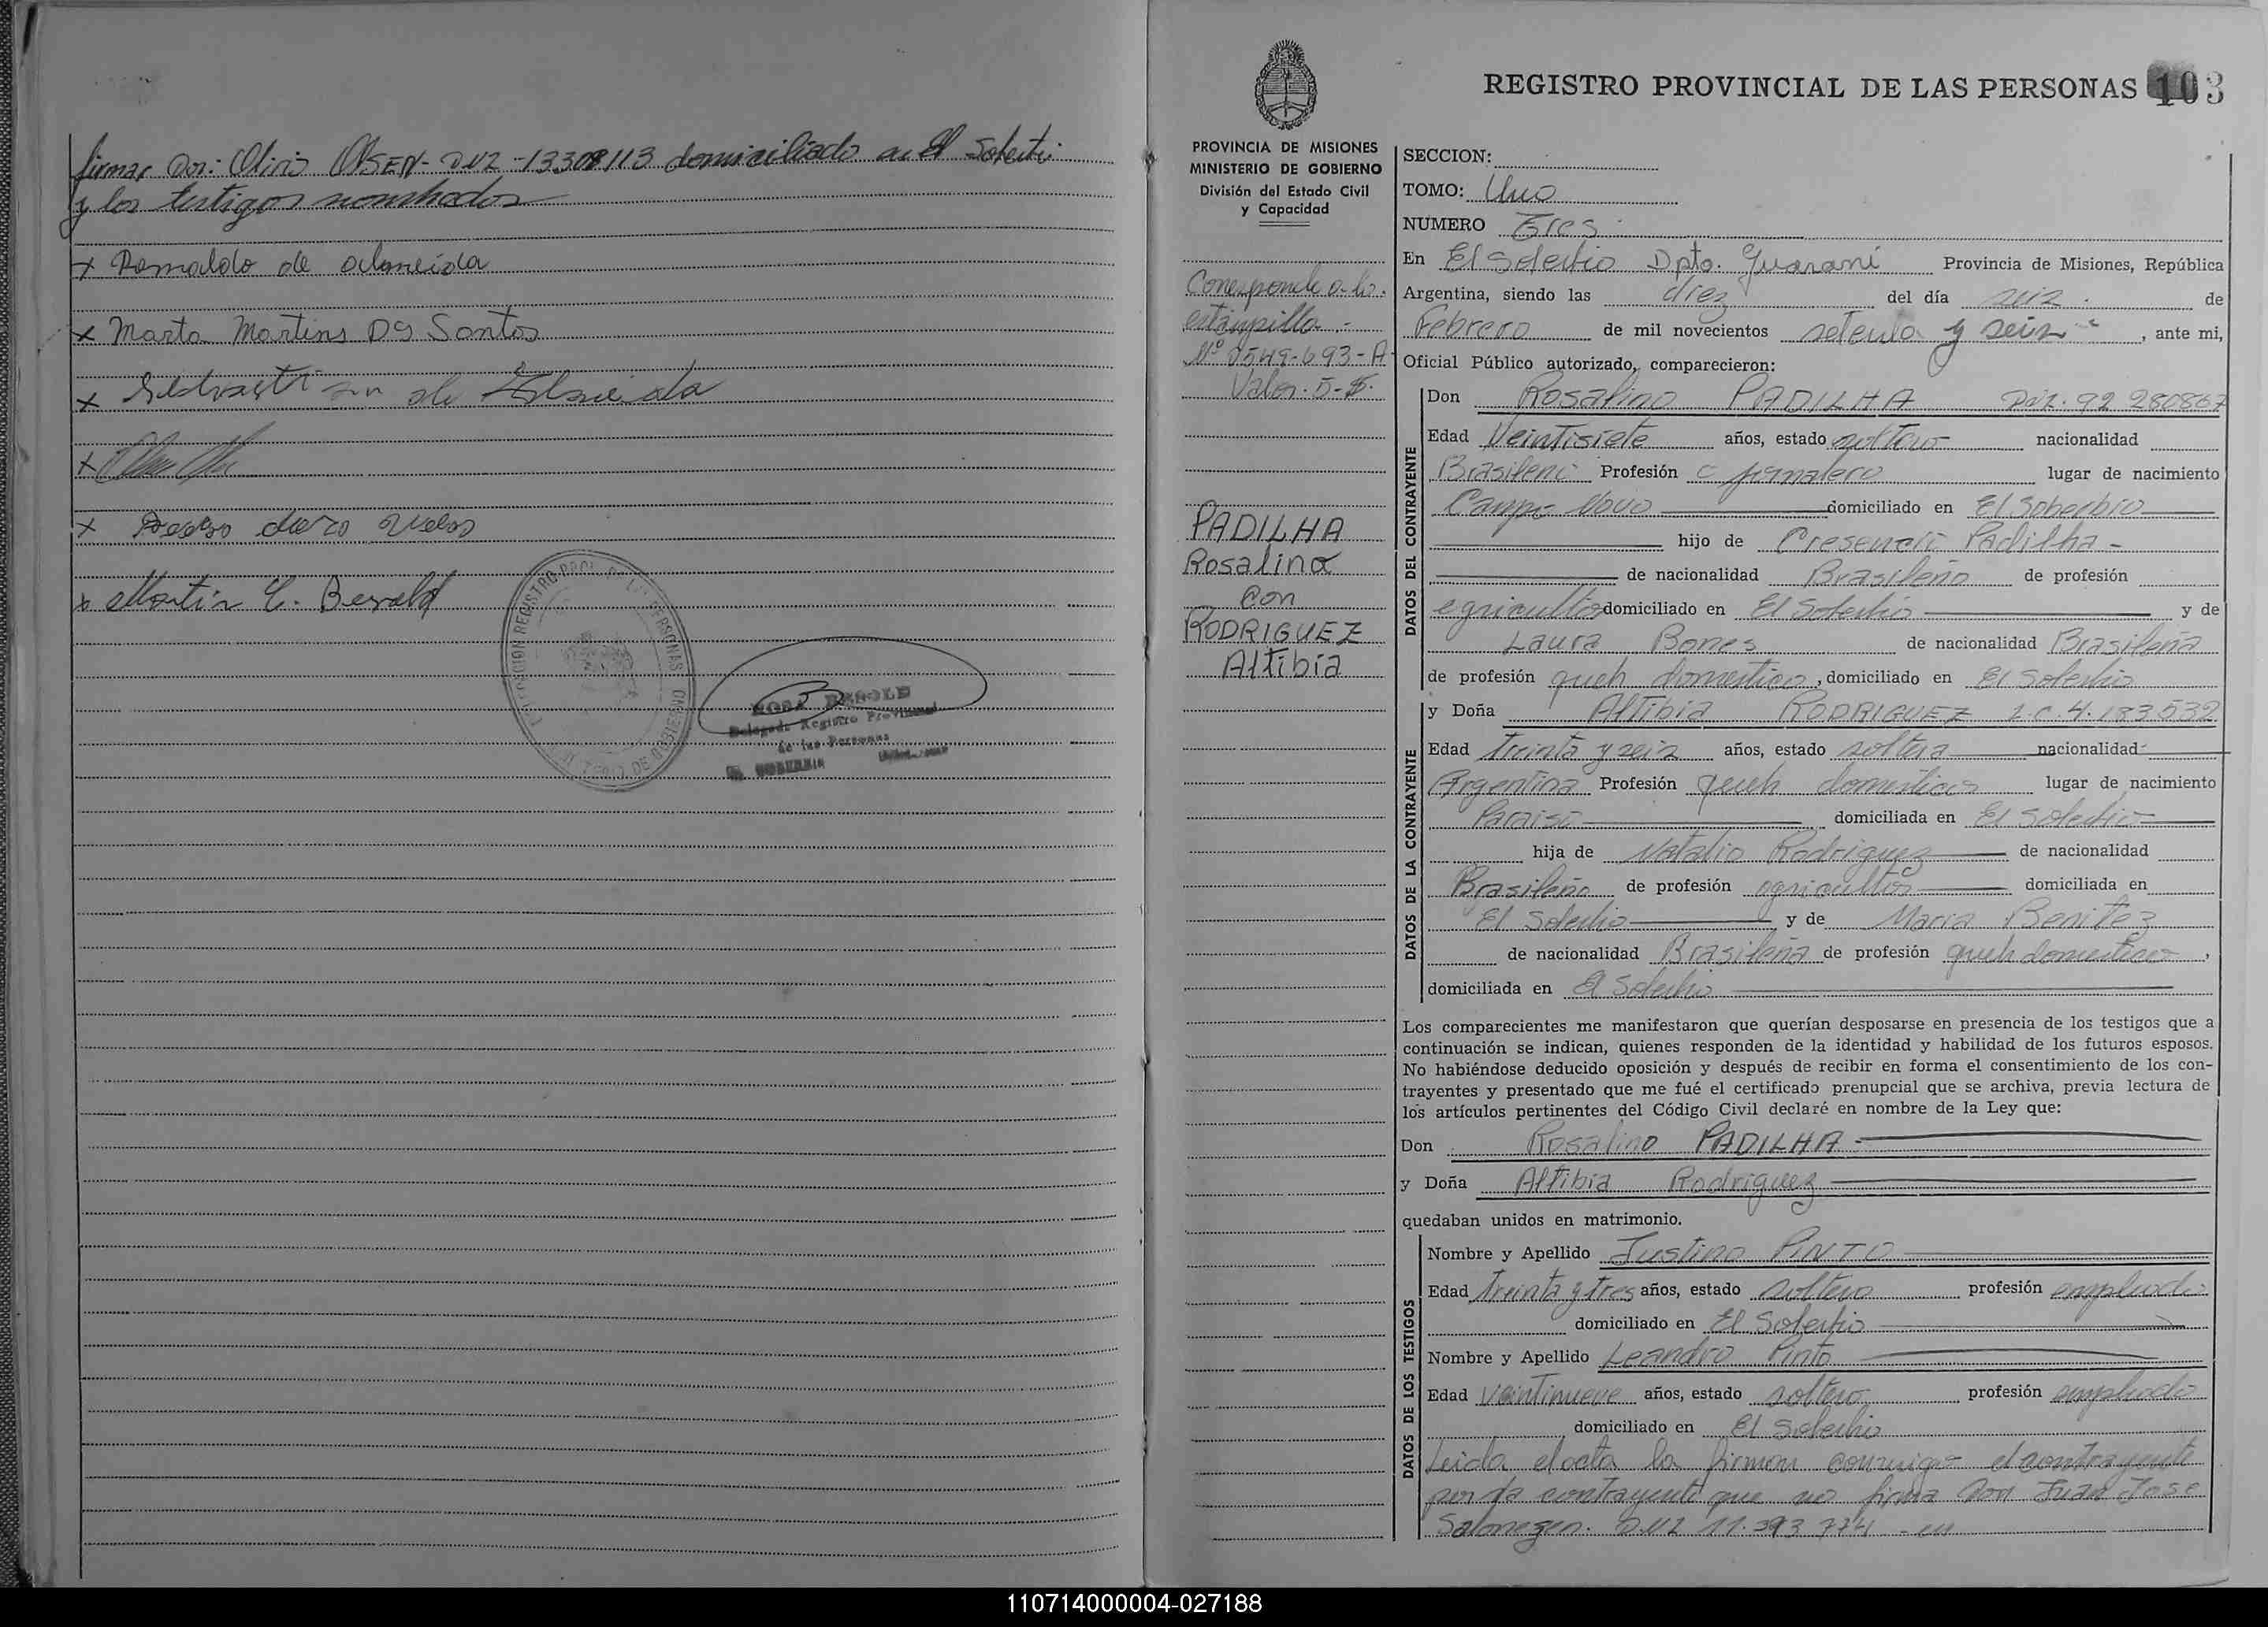 firmar Don: Olirio OLSEN - DNI - 13308113 domiciliado en El Soberbio
y los testigos nombrados
x Romaldo de Almeida
x Marta Martins Ds Santos
x de Almeida
x
x
x Martin C. Berold
ROSA BEROLD
Delegada Registro Provincial
de las Personas
EL SOBERBIO
REGISTRO PROVINCIAL DE LAS PERSONAS 103
PROVINCIA DE MISIONES
MINISTERIO DE GOBIERNO
División del Estado Civil
y Capacidad
Corresponde a la
estampilla -
Nº 0549-693-A
Valor 5-$.
PADILHA
Rosalino
con
RODRIGUEZ
Altibia
SECCION:
TOMO: Uno
NUMERO Tres
En El Soberbio Dpto. Guarani Provincia de Misiones, República
Argentina, siendo las diez del día seis de
Febrero de mil novecientos setenta y seis , ante mi,
Oficial Público autorizado, comparecieron:
DATOS DEL CONTRAYENTE
Don Rosalino PADILHA DNI. 92 280867
Edad Veintisiete años, estado soltero nacionalidad
Brasileño Profesión jornalero lugar de nacimiento
Campo Novo domiciliado en El Soberbio
hijo de Presencio Padilha -
de nacionalidad Brasileño de profesión
agricultor domiciliado en El Soberbio y de
Laura Bones de nacionalidad Brasileña
de profesión queh domestico, domiciliado en El Soberbio
DATOS DE LA CONTRAYENTE
y Doña Altibia RODRIGUEZ L.C. 4.183532
Edad Treinta y seis años, estado soltera nacionalidad
Argentina Profesión queh domesticos lugar de nacimiento
Paraiso domiciliada en El Soberbio
hija de Natalio Rodriguez de nacionalidad
Brasileño de profesión agricultor domiciliada en
El Soberbio y de Maria Benitez
de nacionalidad Brasileña de profesión queh domesticos ,
domiciliada en El Soberbio
Los comparecientes me manifestaron que querían desposarse en presencia de los testigos que a
continuación se indican, quienes responden de la identidad y habilidad de los futuros esposos.
No habiéndose deducido oposición y después de recibir en forma el consentimiento de los con-
trayentes y presentado que me fué el certificado prenupcial que se archiva, previa lectura de
los artículos pertinentes del Código Civil declaré en nombre de la Ley que:
Don Rosalino PADILHA -
y Doña Altibia Rodriguez
quedaban unidos en matrimonio.
DATOS DE LOS TESTIGOS
Nombre y Apellido Justino PINTO
Edad Treinta y tres años, estado soltero profesión empleado
domiciliado en El Soberbio
Nombre y Apellido Leandro Pinto
Edad Veintinueve años, estado soltero profesión empleado
domiciliado en El Soberbio
Leida el acta la firman conmigo el contrayente
por la contrayente que no firma Don Juan Jose
DNI 11.393 774 - en
110714000004-027188